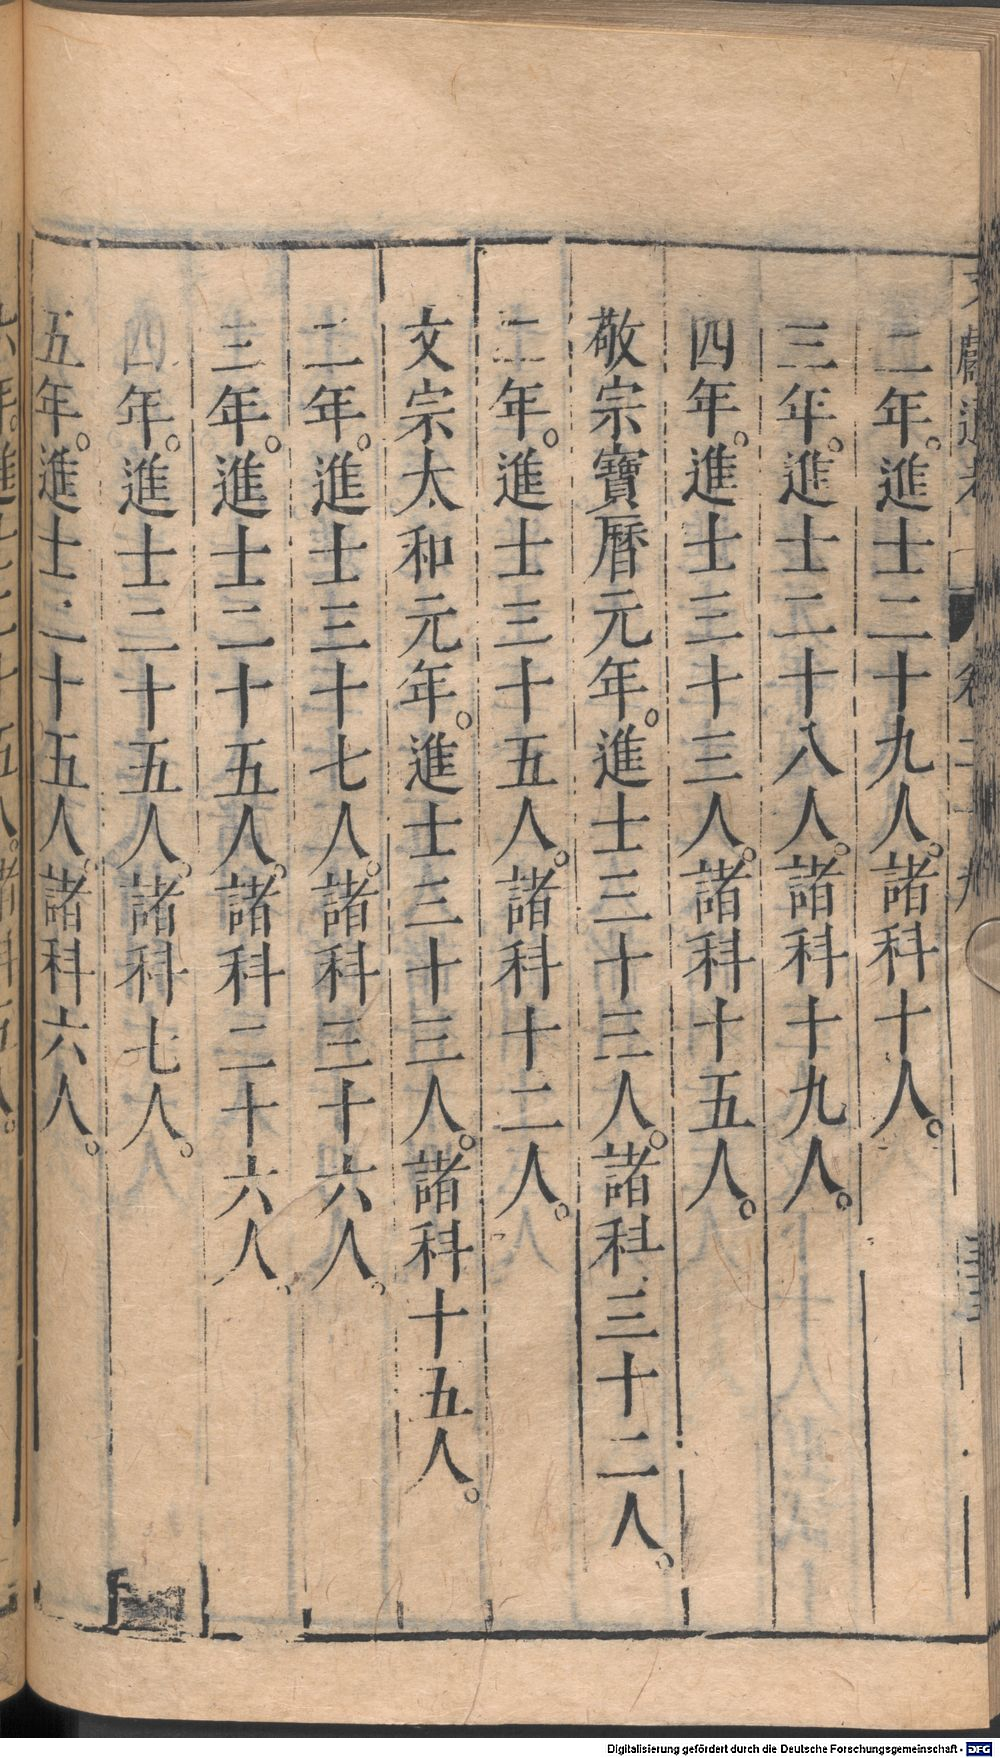 二年。進士二十九人。諸科十人。
三年。進士二十八人。諸科十九人。
四年。進士三十三人。諸科十五人。
敬宗寶曆元年。進士三十三人。諸科三十二人。
二年。進士三十五人。諸科十二人。
文宗太和元年。進士三十三人。諸科十五人。
二年。進士三十七人。諸科三十六人。
三年。進士二十五人。諸科二十六人。
四年。進士二十五人。諸科七人。
五年。進士二十五人。諸科六人。
Digitalisierung gefördert durch die Deutsche Forschungsgemeinschaft - DFG